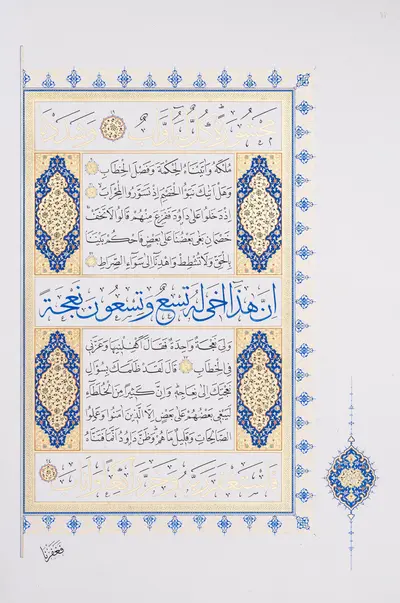 مَحْشُورَةً كُلٌّ لَهُ اَوَّابٌ وَشَدَدْنَا
مُلْكَهُ وَاٰتَيْنَاهُ الْحِكْمَةَ وَفَصْلَ الْخِطَابِ
وَهَلْ اَتٰيكَ نَبَؤُا الْخَصْمِ اِذْ تَسَوَّرُوا الْمِحْرَابَ
اِذْ دَخَلُوا عَلٰى دَاوُدَ فَفَزِعَ مِنْهُمْ قَالُوا لَا تَخَفْ
خَصْمَانِ بَغٰى بَعْضُنَا عَلٰى بَعْضٍ فَاحْكُمْ بَيْنَنَا
بِالْحَقِّ وَلَا تُشْطِطْ وَاهْدِنَا اِلٰى سَوَاءِ الصِّرَاطِ
اِنَّ هٰذَا اَخِي لَهُ تِسْعٌ وَتِسْعُونَ نَعْجَةً
وَلِيَ نَعْجَةٌ وَاحِدَةٌ فَقَالَ اَكْفِلْنِيهَا وَعَزَّنِي
فِي الْخِطَابِ قَالَ لَقَدْ ظَلَمَكَ بِسُؤَالِ
نَعْجَتِكَ اِلٰى نِعَاجِهِ وَاِنَّ كَثِيرًا مِنَ الْخُلَطَاءِ
لَيَبْغِي بَعْضُهُمْ عَلٰى بَعْضٍ اِلَّا الَّذِينَ اٰمَنُوا وَعَمِلُوا
الصَّالِحَاتِ وَقَلِيلٌ مَا هُمْ وَظَنَّ دَاوُدُ اَنَّمَا فَتَنَّاهُ
فَاسْتَغْفَرَ رَبَّهُ وَخَرَّ رَاكِعًا وَاَنَابَ
فَغَفَرْنَا